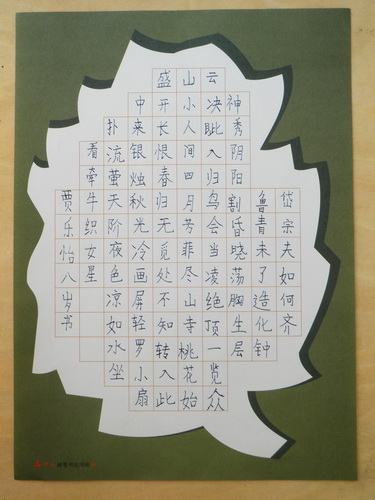 岱宗夫如何齐
鲁青未了造化钟
神秀阴阳割昏晓荡胸生层
云决眦入归鸟会当凌绝顶一览众
山小人间四月芳菲尽山寺桃花始
盛开长恨春归无觅处不知转入此
中来银烛秋光冷画屏轻罗小扇
扑流萤天阶夜色凉如水坐
看牵牛织女星
贾乐怡八岁书